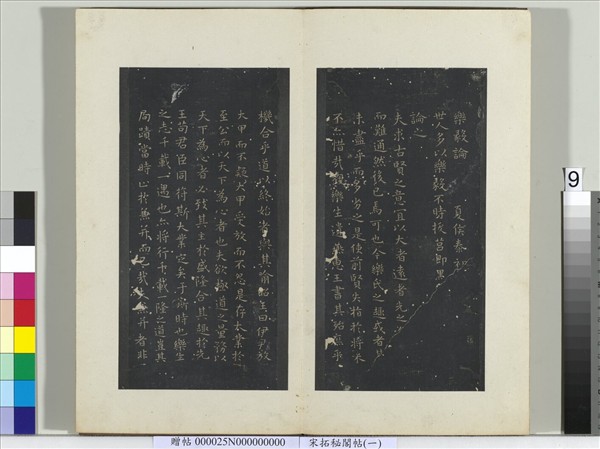 樂毅論 夏侯泰初
世人多以樂毅不時拔莒即墨
論之
夫求古賢之意宜以大者遠者先之
而難通然後已焉可也今樂氏之趣或者其
未盡乎而多劣之是使前賢失指於將来
不亦惜哉觀樂生遺燕惠王書其殆庶乎
機合乎道以終始者與其喻昭王曰伊尹放
大甲而不疑大甲受放而不怨是存大業於
至公而以天下為心者也夫欲極道之量務以
天下為心者必致其主於盛隆合其趣於先
王苟君臣同符斯大業定矣于斯時也樂生
之志千載一遇也亦將行千載一隆之道豈其
局蹟當時止於兼并而已哉夫兼并者非
9
贈帖 000025N000000000 宋拓秘閣帖(一)